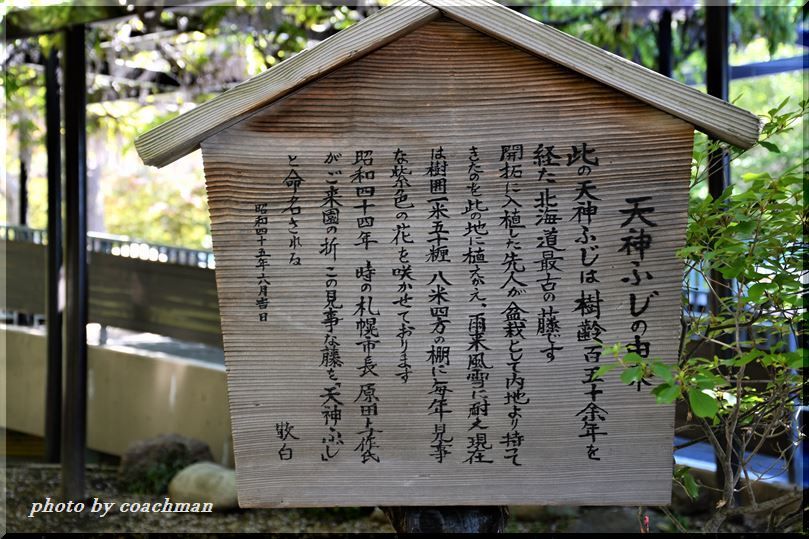 天神ふじの由来
此の天神ふじは樹齢百五十余年を
経た北海道最古の藤です
開拓に入植した先人が盆栽として内地より持て
きたを此の地に植えかえ、雨来風雪に耐え現在
は樹囲一米五十糎 八米四方の棚に毎年見事
な紫色の花を咲かせております
昭和四十四年 時の札幌市長 原田与作氏
がご来園の折 この見事な藤を「天神ふじ」
と命名される
昭和四十五年六月吉日
敬白
photo by coachman